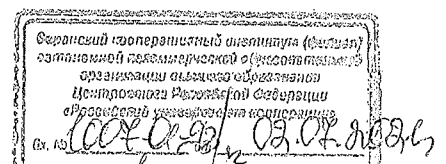 Саранский кооперативный институт (филиал)
автономной некоммерческой образовательной
организации высшего образования
Центросоюза Российской Федерации
«Российский университет кооперации»
Вх. №